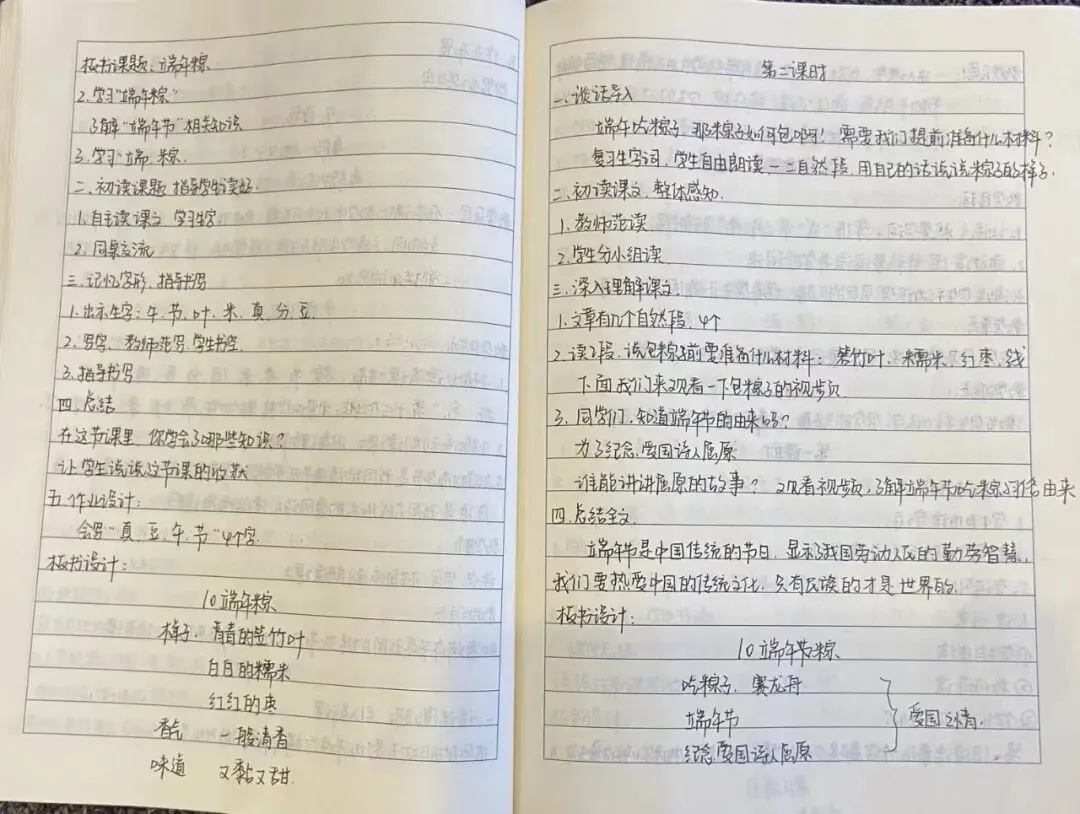 板书课题：端午粽
2.学习"端午粽"
了解"端午节"相关知识
3.学习"端、粽.
二、初读课题 指导学生读好.
1.自主读课文 学习生字
2.同桌交流
三.记忆字形，指导书写
1.出示生字：午、节、叶、米、真、分、豆.
2.写字，教师范写，学生书空.
3.指导书写
四.总结
在这节课里，你学会了哪些知识？
让学生说说这节课的收获
五.作业设计：
会写"真、豆、午、节"4个字.
板书设计：
10端午粽
样子、青青的箬竹叶
白白的糯米
红红的枣
香气 一股清香
味道 又黏又甜.
第二课时
一、谈话导入
端午吃粽子，那粽子如何包呀！需要我们提前准备什么材料？
复习生字词，学生自由朗读一二自然段，用自己的话说说粽子的样子.
二、初读课文，整体感知.
1.教师范读
2.学生分小组读
三、深入理解课文.
1.文章有几个自然段，4个
2.读2段，说包粽子前要准备什么材料：箬竹叶、糯米、红枣、线
下面我们来观看一下包粽子的视频
3.同学们，知道端午节的由来吗？
为了纪念爱国诗人屈原
谁能讲讲屈原的故事？观看视频，了解端午节吃粽子习俗由来
四.总结全文.
端午节是中国传统的节日，显示了我国劳动人民的勤劳智慧，
我们要热爱中国的传统文化，只有民族的才是世界的.
板书设计：
10端午节粽
吃粽子、赛龙舟
端午节
纪念爱国诗人屈原
爱国之情.